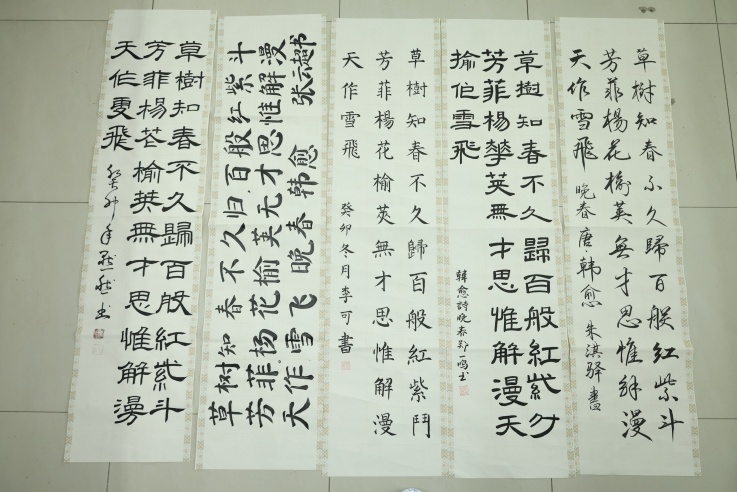 草樹知春不久歸百般紅紫斗
芳菲楊花榆莢無才思惟解漫
天作雪飛 晚春唐·韩愈 朱淇驿書
草樹知春不久歸百般紅紫斗
芳菲楊華莢無才思惟解漫天
榆作雪飛 韓愈詩晚春郑一鸣书
草樹知春不久歸百般紅紫鬥
芳菲楊花榆莢無才思惟解漫
天作雪飛 癸卯冬月李可書
草树知春不久归百般红紫斗
芳菲杨花榆英无才思惟解漫
天作雪飞晚春韩愈 张云超书
草樹知春不久歸百般紅紫斗
芳菲楊花榆莢無才思惟解漫
天作雪飛 癸卯年书